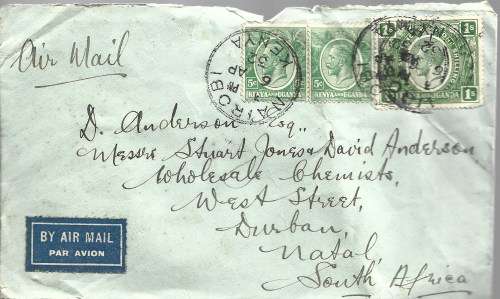 Air Mail
5c 5c 1/- 1/-
KENYA AND UGANDA KENYA AND UGANDA
NAIROBI
KENYA
D. Anderson Esq.,
Messrs Stuart Jones & David Anderson,
Wholesale Chemists,
West Street,
Durban,
Natal,
South Africa
BY AIR MAIL
PAR AVION